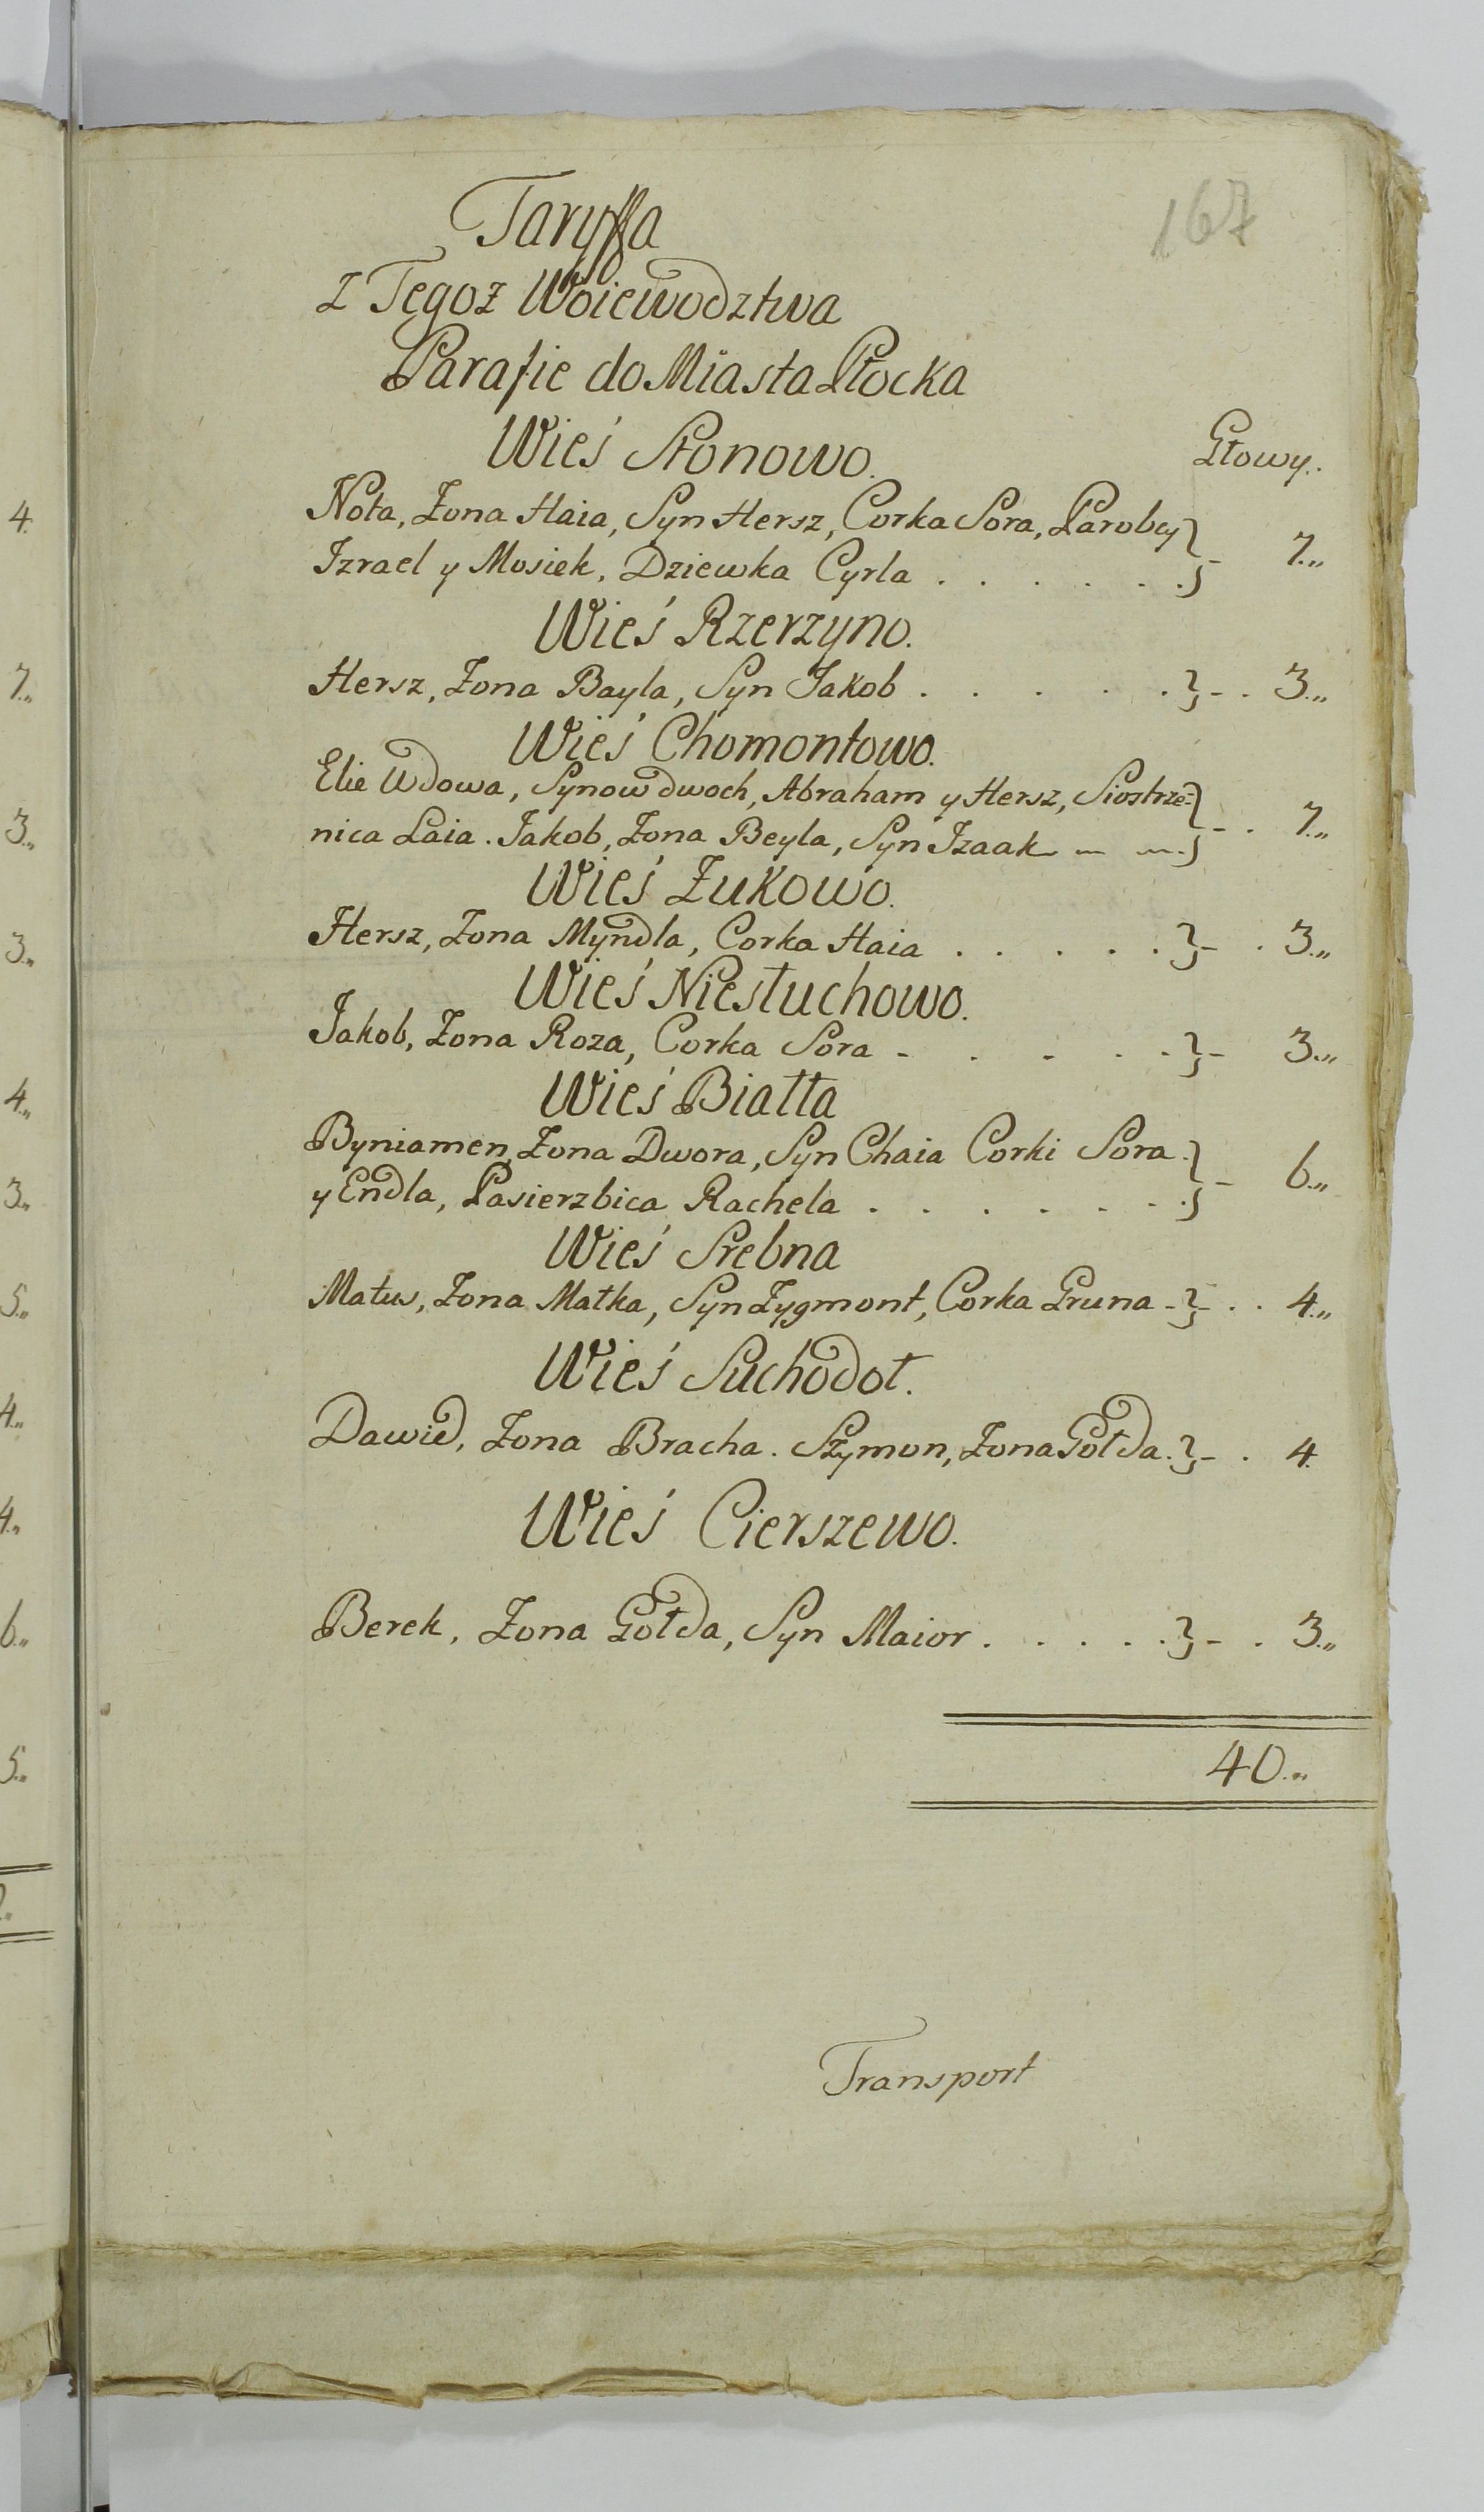 167
Taryffa
Z Tegoż Woiewodztwa
Parafie do Miasta Płocka
Wieś Słonowo.
Głowy.
Nota, Żona Haia, Syn Hersz, Corka Sora, Parobcy
Izrael y Mosiek, Dziewka Cyrla . . . . . . } - 7.,,
Wieś Rzerzyno.
Hersz, Żona Bayla, Syn Jakob . . . . . . } - . 3.,,
Wieś Chomontowo.
Elie Wdowa, Synow dwoch, Abraham y Hersz, Siostrze=
nica Laia. Jakob, Żona Beyla, Syn Izaak } - . 7.,,
Wieś Żukowo.
Hersz, Żona Myndla, Corka Haia . . . . . } - . 3.,,
Wieś Niesłuchowo.
Jakob, Żona Roza, Corka Sora - . . . . } - 3.,,
Wieś Białła
Byniamen, Żona Dwora, Syn Chaia Corki Sora
y Endla, Pasierzbica Rachela . . . . . . . } - 6.,,
Wieś Srebna
Matus, Żona Matka, Syn Zygmont, Corka Gruna - } - . . 4.,,
Wieś Suchodoł.
Dawid, Żona Bracha. Szymon, Żona Gołda. } - . 4.
Wieś Cierszewo.
Berek, Żona Gołda, Syn Maior . . . . . } - . 3.,,
40.,,
Transport
4.
7.,,
3.,,
3.,,
4.,,
3.,,
5.,,
4.,,
4.,,
6.,,
5.,,